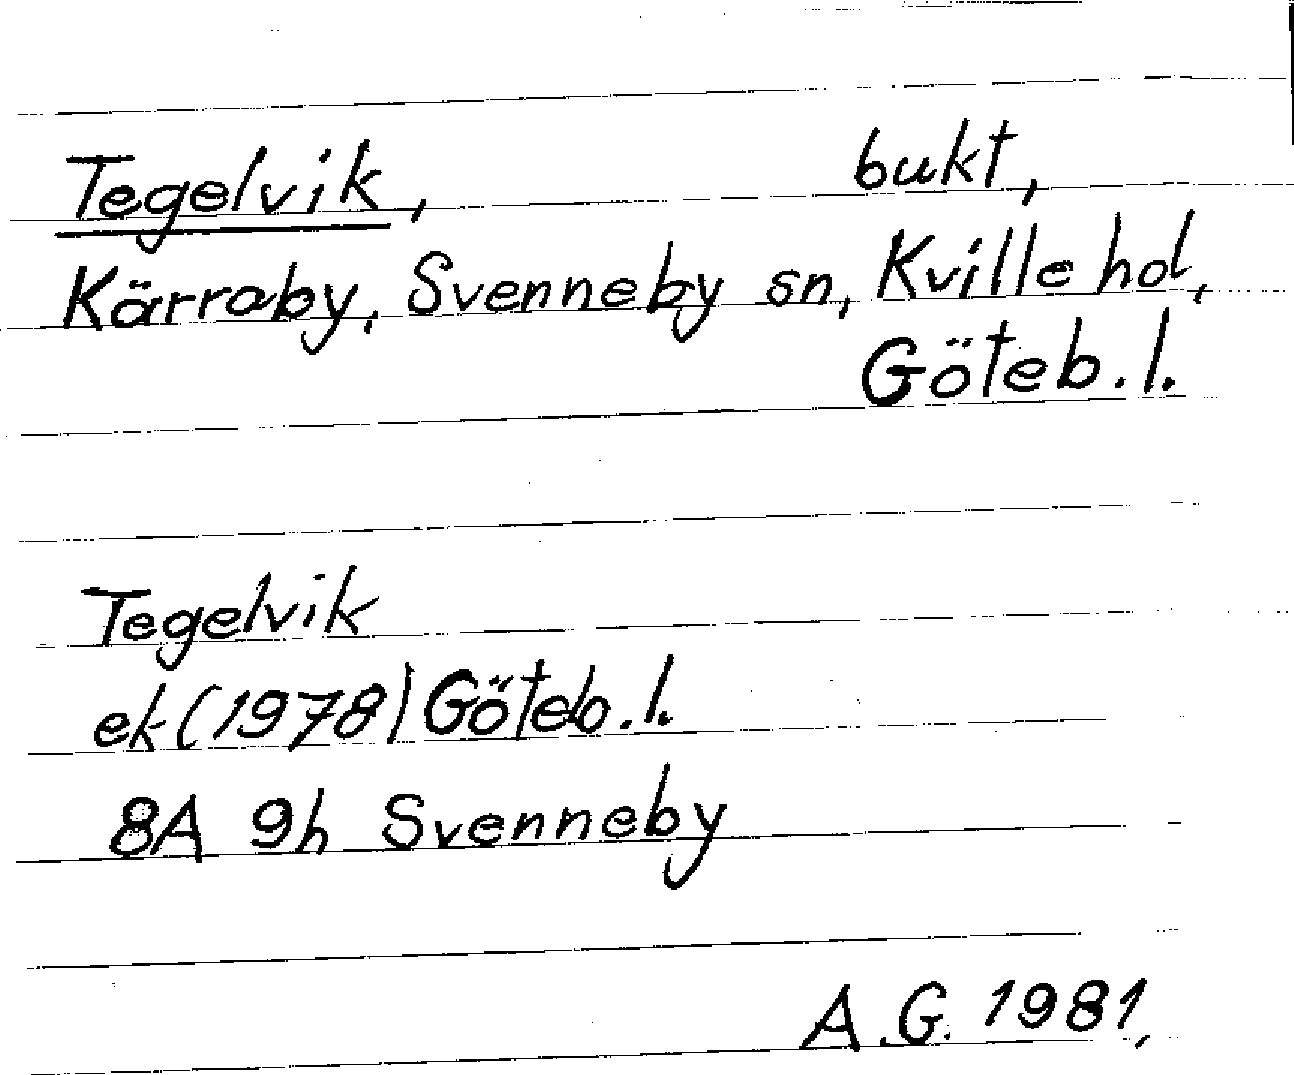 Tegelvik, bukt,
Kärraby, Svenneby sn, Kville hd,
Göteb. l.
Tegelvik
ek (1978) Göteb. l.
8A 9h Svenneby
A.G. 1981,